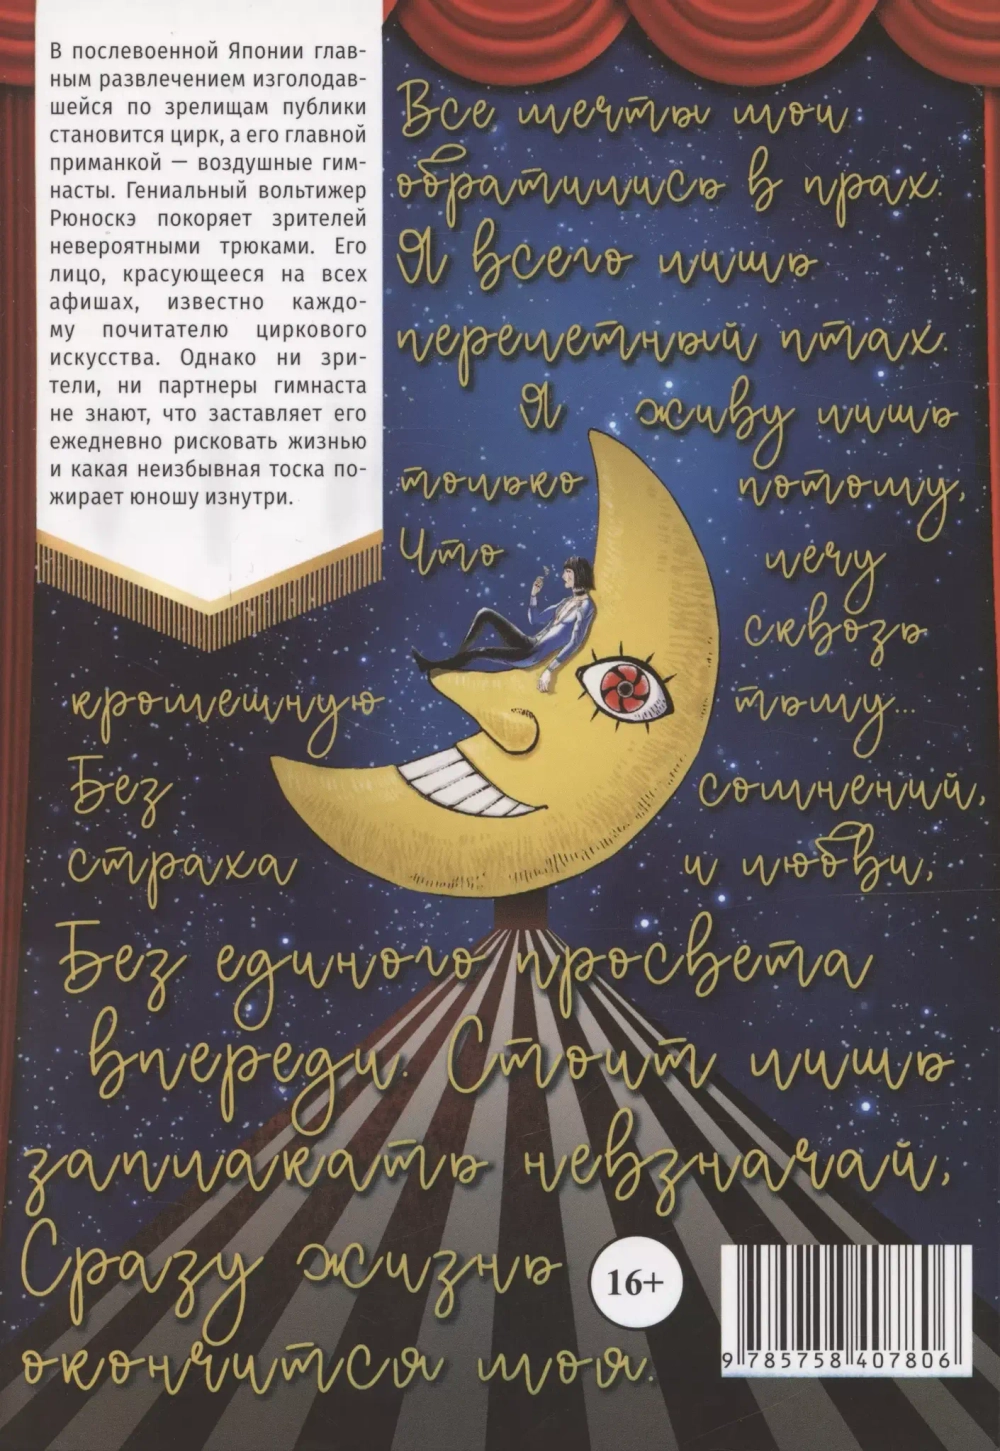 В послевоенной Японии глав-
ным развлечением изголодав-
шейся по зрелищам публики
становится цирк, а его главной
приманкой — воздушные гим-
насты. Гениальный вольтижер
Рюноскэ покоряет зрителей
невероятными трюками. Его
лицо, красующееся на всех
афишах, известно каждо-
му почитателю циркового
искусства. Однако ни зри-
тели, ни партнеры гимнаста
не знают, что заставляет его
ежедневно рисковать жизнью
и какая неизбывная тоска по-
жирает юношу изнутри.
Все мечты мои
обратились в прах.
Я всего лишь
перелетный птах.
Я живу лишь
только потому,
Что лечу
сквозь
кромешную тьму...
Без сомнений,
страха и любви,
Без единого просвета
впереди. Стоит лишь
заплакать невзначай,
Сразу жизнь
окончится моя.
16+
9 785758 407806